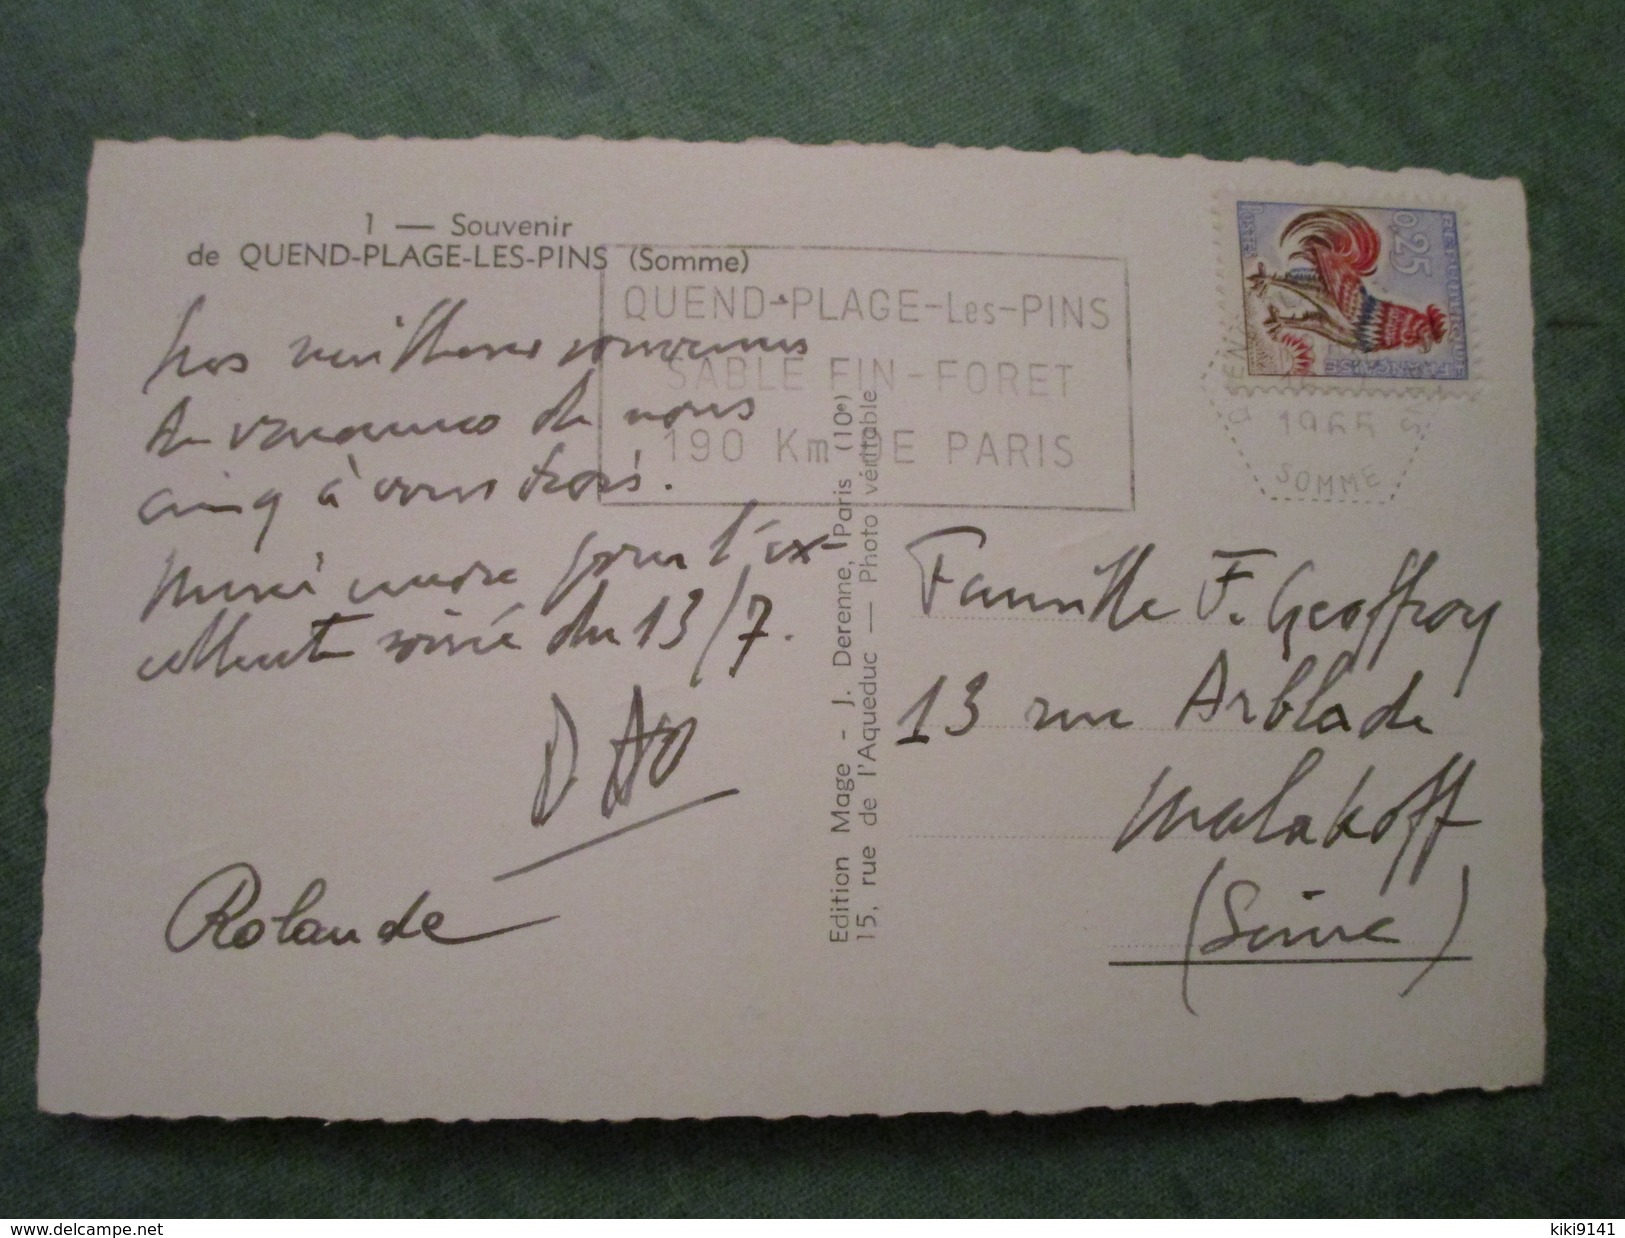 1 — Souvenir
de QUEND-PLAGE-LES-PINS (Somme)
Nos meilleurs souvenirs
de vacances de nous
cinq à vous trois.
Merci encore pour l'ex-
cellente soirée du 13/7.
Rolande
Edition Mage - J. Derenne, Paris (10e)
15, rue de l'Aqueduc — Photo véritable
QUEND-PLAGE-Les-PINS
SABLE FIN-FORET
190 Km DE PARIS
REPUBLIQUE FRANÇAISE
0,25
POSTES
1965
SOMME
Famille F. Geoffroy
13 rue Arblade
Malakoff
(Seine)
www.delcampe.net
kiki9141